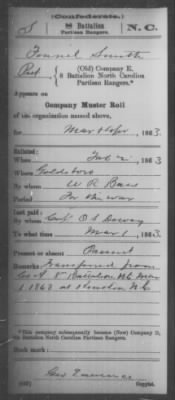 (Confederate.)
S 8 Battalion N. C.
Partisan Rangers.
Smith
Pvt, (Old) Company E,
8 Battalion North Carolina
Partisan Rangers.*
Appears on
Company Muster Roll
of the organization named above,
for Mar & Apr, 1863.
Enlisted:
When 1863
Where Goldsboro
By whom W R Bass
Period For the war
Last paid:
By whom Capt O S Dewey
To what time Mar 1, 1863.
Present or absent Present
Remarks: Transferred from
Co A 8 Battalion N.C. Mar
1 1863 at Kinston N.C.
*This company subsequently became (New) Company D,
8th Battalion North Carolina Partisan Rangers.
Book mark:
Copyist.